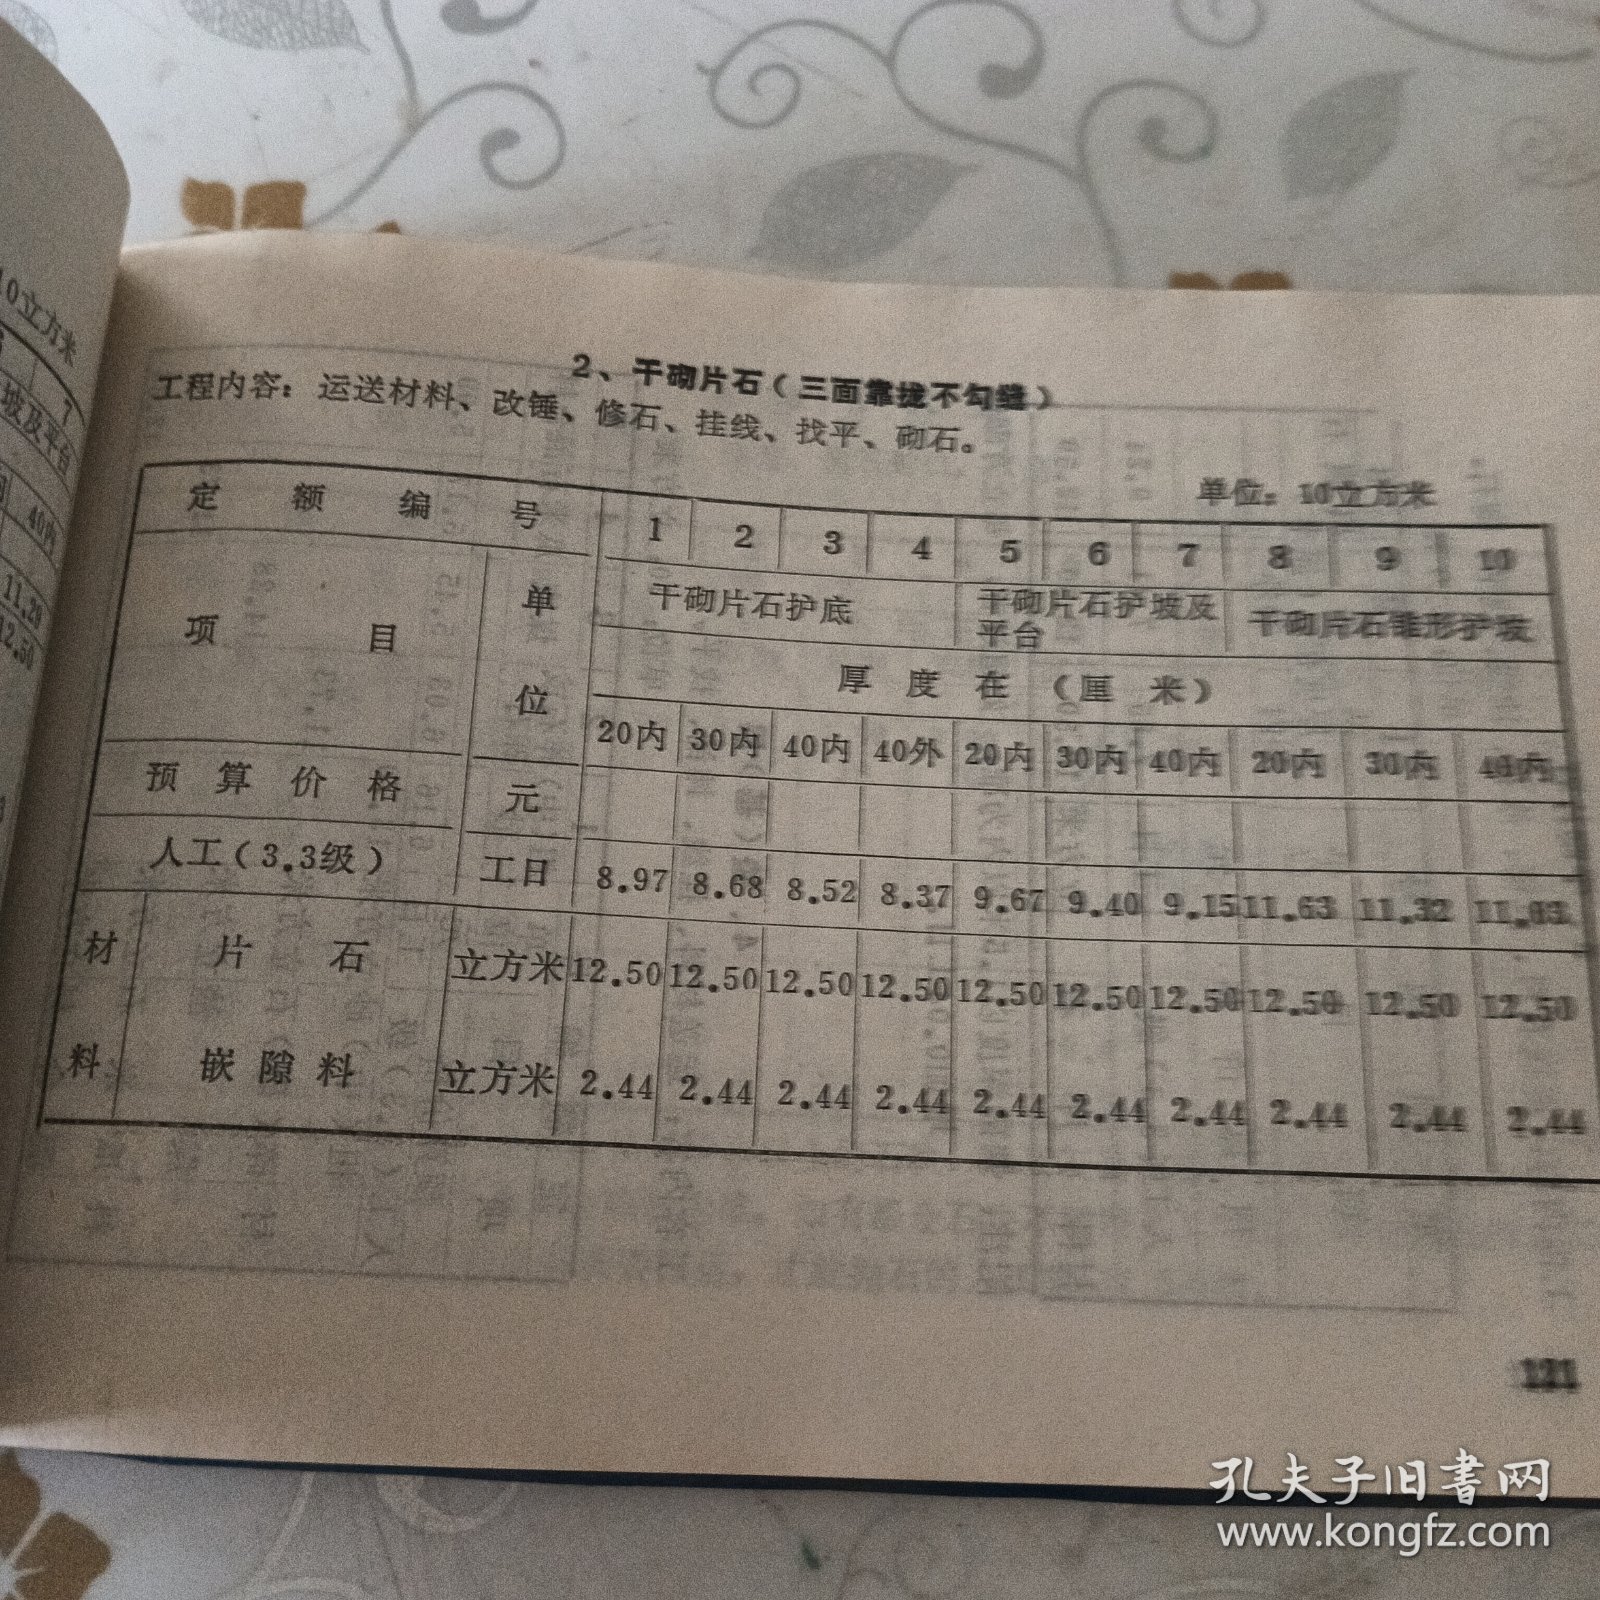 10立方米
7
坡及平台
40内
11.20
12.50
2、干砌片石（三面靠拢不勾缝）
工程内容：运送材料、改锤、修石、挂线、找平、砌石。
单位：10立方米
定额编号 1 2 3 4 5 6 7 8 9 10
项目 单位 干砌片石护底 干砌片石护坡及平台 干砌片石锥形护坡
厚度在（厘米）
20内 30内 40内 40外 20内 30内 40内 20内 30内 40内
预算价格 元
人工（3.3级） 工日 8.97 8.68 8.52 8.37 9.67 9.40 9.15 11.63 11.32 11.03
材料 片石 立方米 12.50 12.50 12.50 12.50 12.50 12.50 12.50 12.50 12.50 12.50
嵌隙料 立方米 2.44 2.44 2.44 2.44 2.44 2.44 2.44 2.44 2.44 2.44
121
孔夫子旧书网
www.kongfz.com